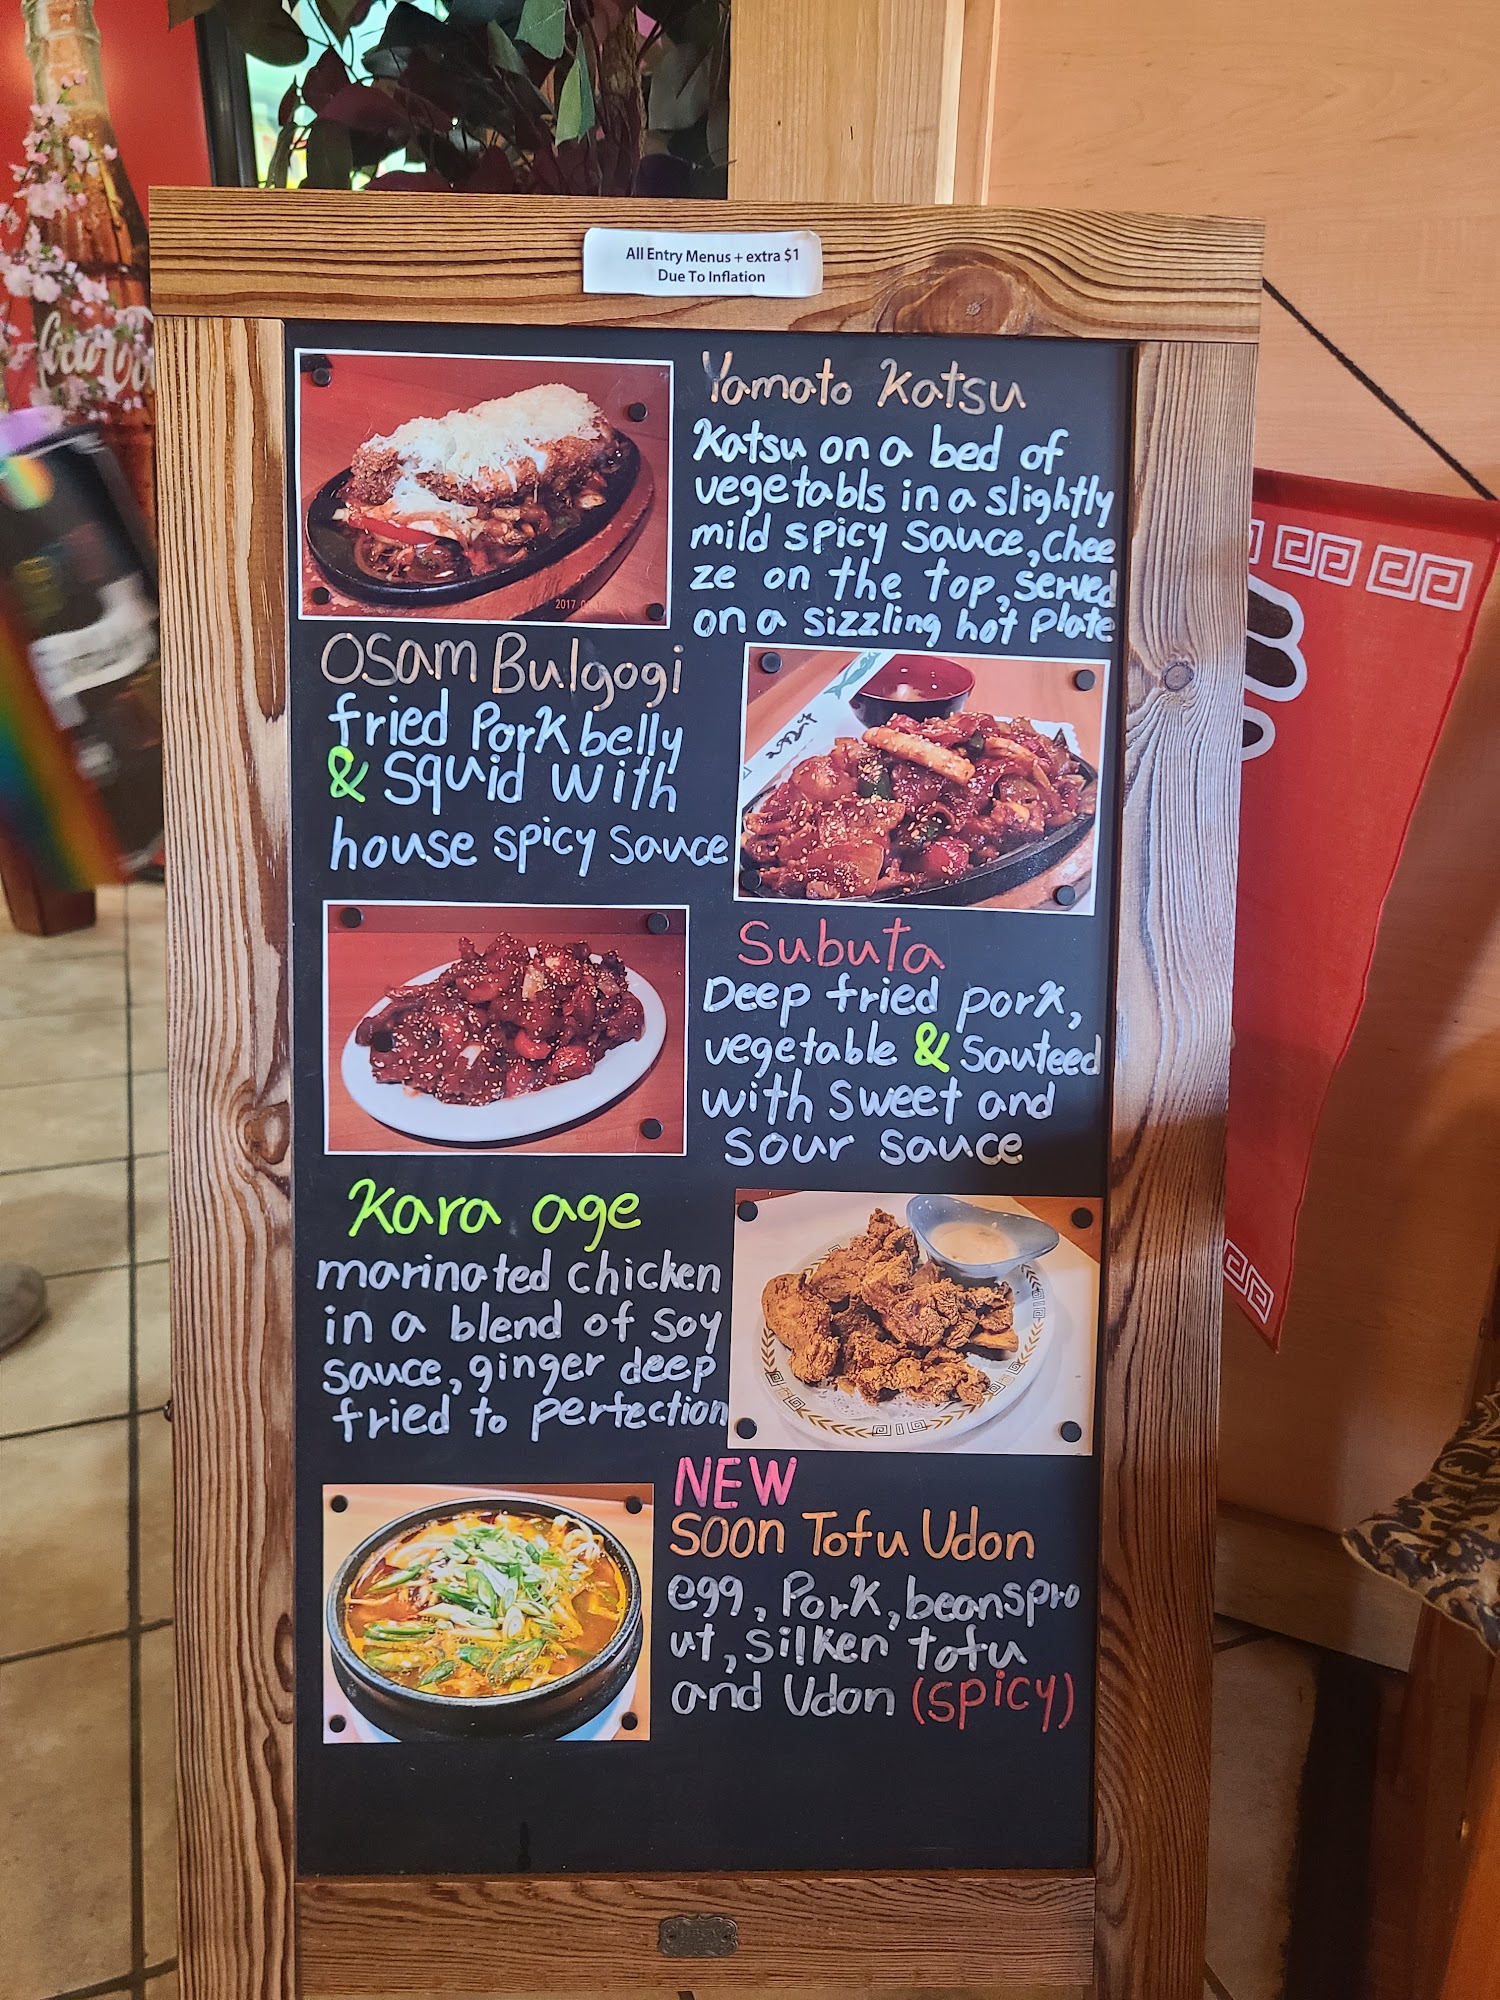 All Entry Menus + extra $1
Due To Inflation
Yamato Katsu
Katsu on a bed of
vegetabls in a slightly
mild spicy sauce, chee
ze on the top, served
on a sizzling hot plate
OSAM Bulgogi
fried Pork belly
& squid with
house spicy sauce
Subuta
Deep fried pork,
vegetable & sauteed
with sweet and
sour sauce
Kara age
marinated chicken
in a blend of soy
sauce, ginger deep
fried to perfection
NEW
Soon Tofu Udon
egg, Pork, beanspro
ut, silken tofu
and Udon (spicy)